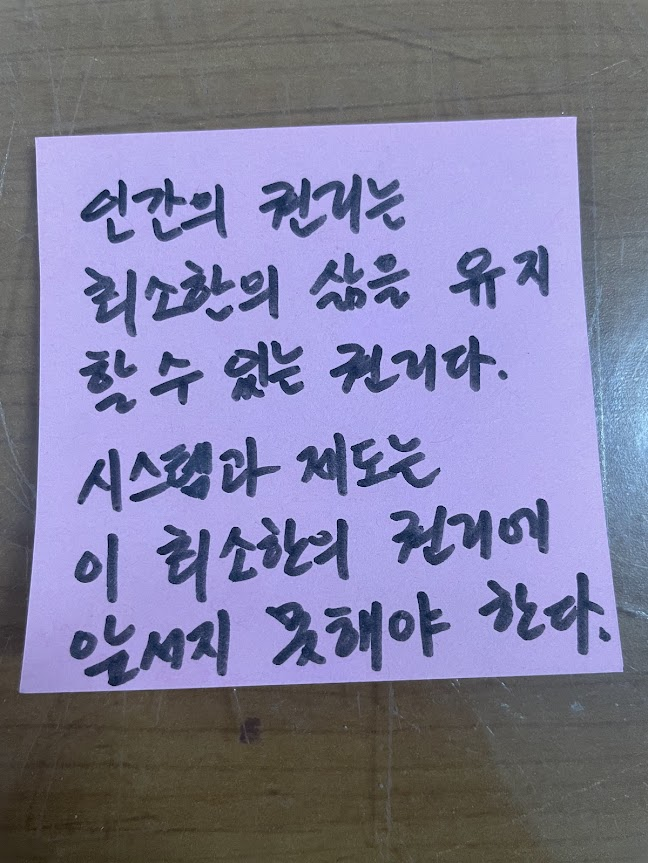 인간의 권리는
최소한의 삶을 유지
할 수 있는 권리다.
시스템과 제도는
이 최소한의 권리에
앞서지 못해야 한다.